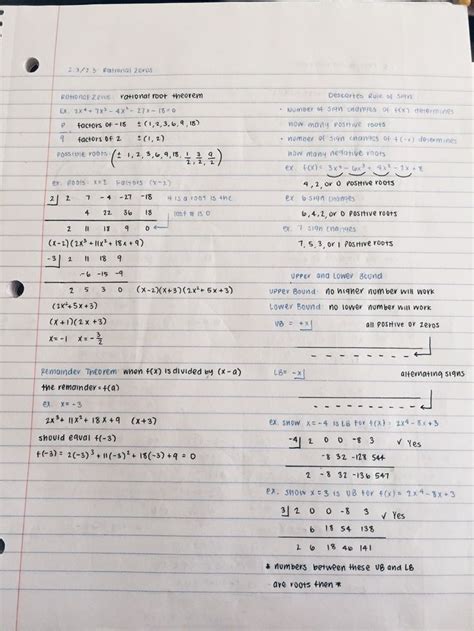 2.3/2.3 Rational Zeros
Rational Zeros: rational root theorem
ex. 2x⁴ + 7x³ - 4x² - 27x - 18 = 0
p factors of -18 ± (1, 2, 3, 6, 9, 18)
q factors of 2 ± (1, 2)
possible roots: (± 1, 2, 3, 6, 9, 18, 1/2, 3/2, 9/2)
ex. Roots: x=2 Factors (x-2)
2| 2 7 -4 -27 -18 is a root is the
4 22 36 18 last # is 0
2 11 18 9 0
(x-2)(2x³+11x²+18x+9)
-3| 2 11 18 9
-6 -15 -9
2 5 3 0 (x-2)(x+3)(2x²+5x+3)
(2x²+5x+3)
(x+1)(2x+3)
x=-1 x=-3/2
Remainder Theorem: when f(x) is divided by (x-a)
the remainder = f(a)
ex. x=-3
2x³+11x²+18x+9 (x+3)
should equal f(-3)
f(-3) = 2(-3)³ + 11(-3)² + 18(-3) + 9 = 0
Descartes Rule of Sign
• number of sign changes of f(x) determines
how many positive roots
• number of sign changes of f(-x) determines
how many negative roots
4, 2, or 0 positive roots
ex 6 sign changes
6, 4, 2, or 0 positive roots
ex. 7 sign changes
7, 5, 3, or 1 positive roots
Upper and Lower Bound
Upper Bound: no higher number will work
Lower Bound: no lower number will work
UB = +x| all positive or zeros
LB = -x| alternating signs
ex. show x=-4 is LB for f(x): 2x⁴-8x+3
-4| 2 0 0 -8 3 ✓ Yes
-8 32 -128 544
2 -8 32 -136 547
ex. show x=3 is UB for f(x) = 2x⁴-8x+3
3| 2 0 0 -8 3 ✓ Yes
6 18 54 138
2 6 18 46 141
* numbers between these UB and LB
are roots then *